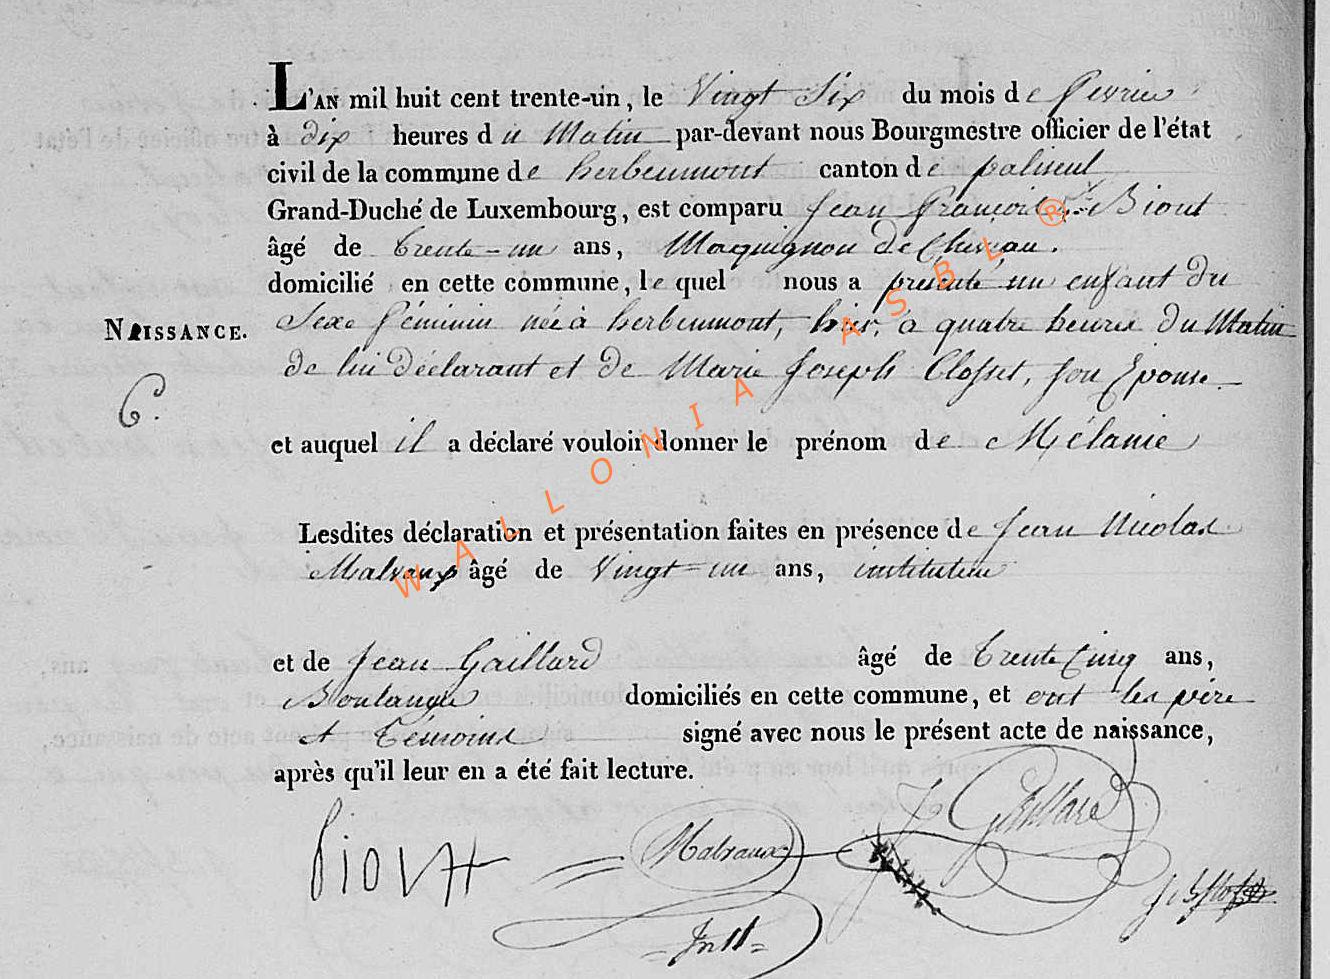 L'AN mil huit cent trente-un, le Vingt Six du mois de fevrier
à dix heures du Matin par-devant nous Bourgmestre officier de l'état
civil de la commune de herbeumont canton de paliseul
Grand-Duché de Luxembourg, est comparu Jean françois Biout
âgé de trente-un ans, Maquignon de
domicilié en cette commune, le quel nous a presenté un enfant du
NAISSANCE. Sexe féminin née à herbeumont, hier, à quatre heures du Matin
de lui déclarant et de Marie Joseph Closset, son Épouse
6.
et auquel il a déclaré vouloir donner le prénom de Mélanie
Lesdites déclaration et présentation faites en présence de Jean Nicolas
Malvaux âgé de Vingt-un ans, instituteur
et de Jean Gaillard âgé de trente Cinq ans,
Boulanger domiciliés en cette commune, et ont les père
et témoins signé avec nous le présent acte de naissance,
après qu'il leur en a été fait lecture.
Malvaux
J Gaillard
WALLONIA ASBL ®